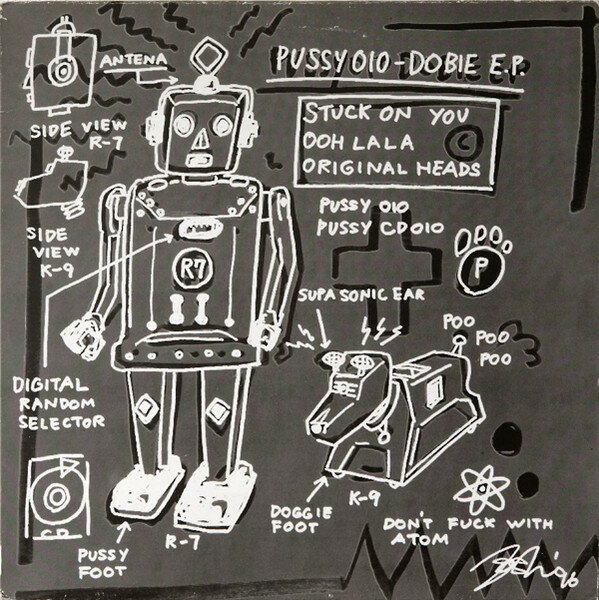 PUSSY 010-DOBIE E.P.
ANTENA
SIDE VIEW
R-7
STUCK ON YOU
OOH LALA
ORIGINAL HEADS
C
PUSSY 010
PUSSY CD010
P
SIDE
VIEW
K-9
R7
SUPA SONIC EAR
POO
POO
POO
DIGITAL
RANDOM
SELECTOR
CD
PUSSY
FOOT
R-7
DOGGIE
FOOT
K-9
DON'T FUCK WITH
ATOM
'96